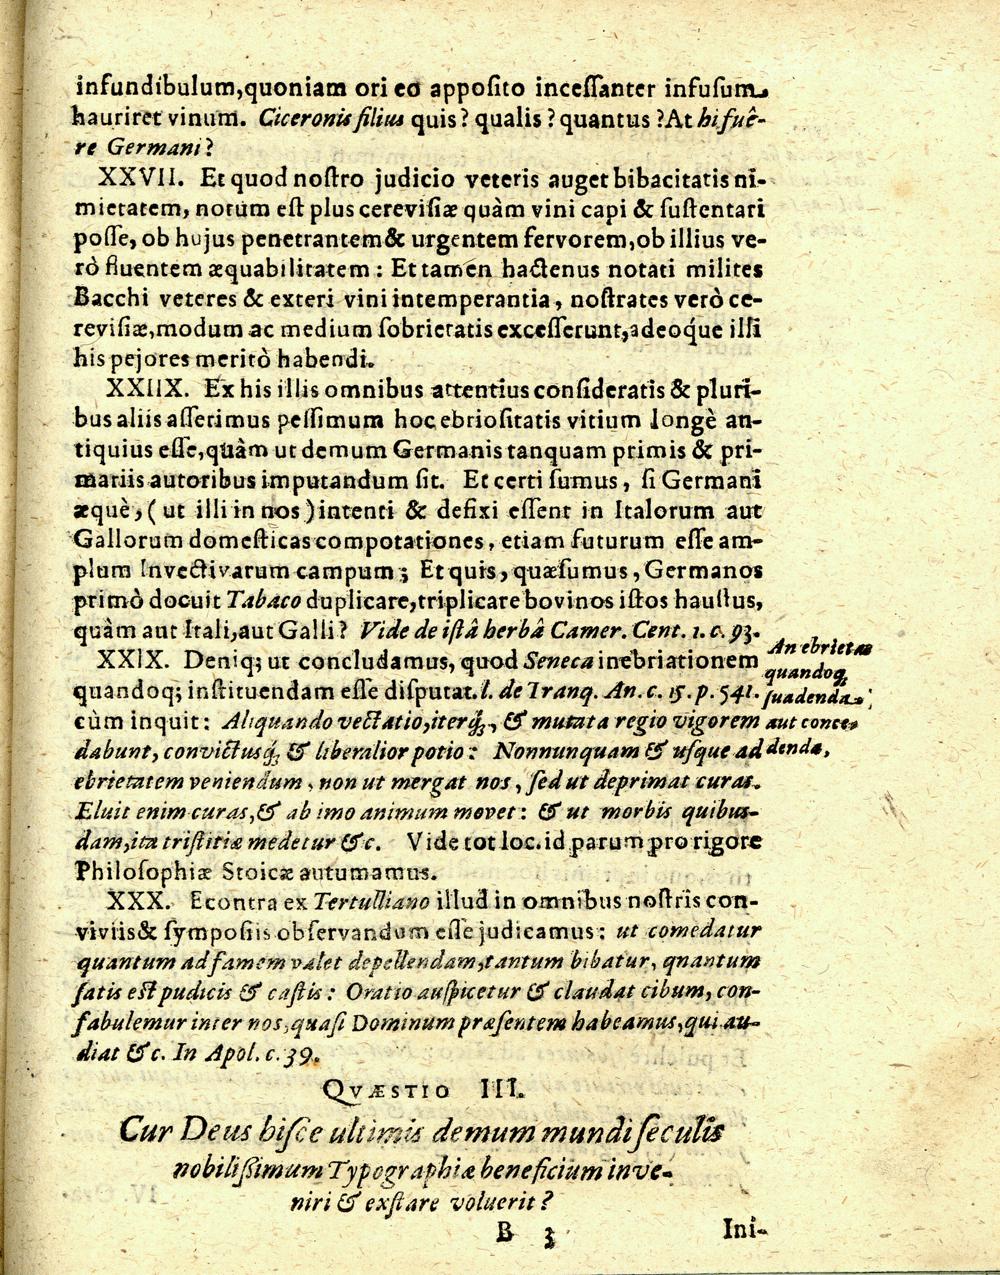 infundibulum,quoniam ori eo apposito incessanter infusum
hauriret vinum. Ciceronis filius quis? qualis? quantus? At hi fuê-
re Germani?
XXVII. Et quod nostro judicio veteris auget bibacitatis ni-
mietatem, notum est plus cerevisiæ quàm vini capi & sustentari
posse, ob hujus penetrantem & urgentem fervorem, ob illius ve-
rò fluentem æquabilitatem: Et tamen hactenus notati milites
Bacchi veteres & exteri vini intemperantia, nostrates verò ce-
revisiæ, modum ac medium sobrietatis excesserunt, adeoq́ue illi
his pejores meritò habendi.
XXIIX. Ex his illis omnibus attentius consideratis & pluri-
bus aliis asserimus pessimum hoc ebriositatis vitium longè an-
tiquius esse, quàm ut demum Germanis tanquam primis & pri-
mariis autoribus imputandum sit. Et certi sumus, si Germani
æquè, (ut illi in nos) intenti & defixi essent in Italorum aut
Gallorum domesticas compotationes, etiam futurum esse am-
plum Invectivarum campum; Et quis, quæsumus, Germanos
primò docuit Tabaco duplicare, triplicare bovinos istos haustus,
quàm aut Itali, aut Galli? Vide de istâ herbâ Camer. Cent. 1. c. 93.
XXIX. Deniq; ut concludamus, quod Seneca inebriationem
quandoq; instituendam esse disputat. l. de Tranq. An. c. 15. p. 541.
cùm inquit: Aliquando vectatio, iterq́;, & mutata regio vigorem
dabunt, convictusq́; & liberalior potio: Nonnunquam & usque ad
ebrietatem veniendum, non ut mergat nos, sed ut deprimat curas.
Eluit enim curas, & ab imo animum movet: & ut morbis quibus-
dam, ita tristitiæ medetur &c. Vide tot loc. id parum pro rigore
Philosophiæ Stoicæ autumamus.
An ebrietas
quandoq;
suadenda,
aut conce-
denda.
XXX. Econtra ex Tertulliano illud in omnibus nostris con-
viviis & symposiis observandum esse judicamus: ut comedatur
quantum ad famem valet depellendam, tantum bibatur, qnantum
satis est pudicis & castis: Oratio auspicetur & claudat cibum, con-
fabulemur inter nos, quasi Dominum præsentem habeamus, qui au-
diat &c. In Apol. c. 39.
QVÆSTIO III.
Cur Deus hisce ultimis demum mundi seculis
nobilissimum Typographiæ beneficium inve-
niri & exstare voluerit?
B 3 Ini-